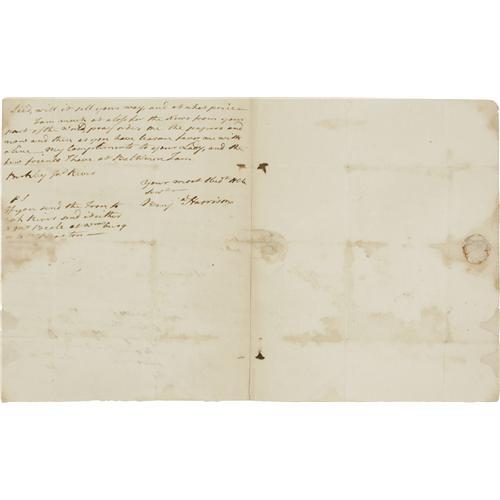 Seed, will it sell your way, and at what price
I am much at a loss for the News from your
part of the World, pray order me the papers and
now and then as you have leasure favor me with
a line — My Compliments to your Lady, and the
few friends I have at Baltimore I am
Berkley Jas River
Your most Obedt. Hble
Serv
Benj Harrison
PS
If you send the Iron to
River send it either
Mr
at